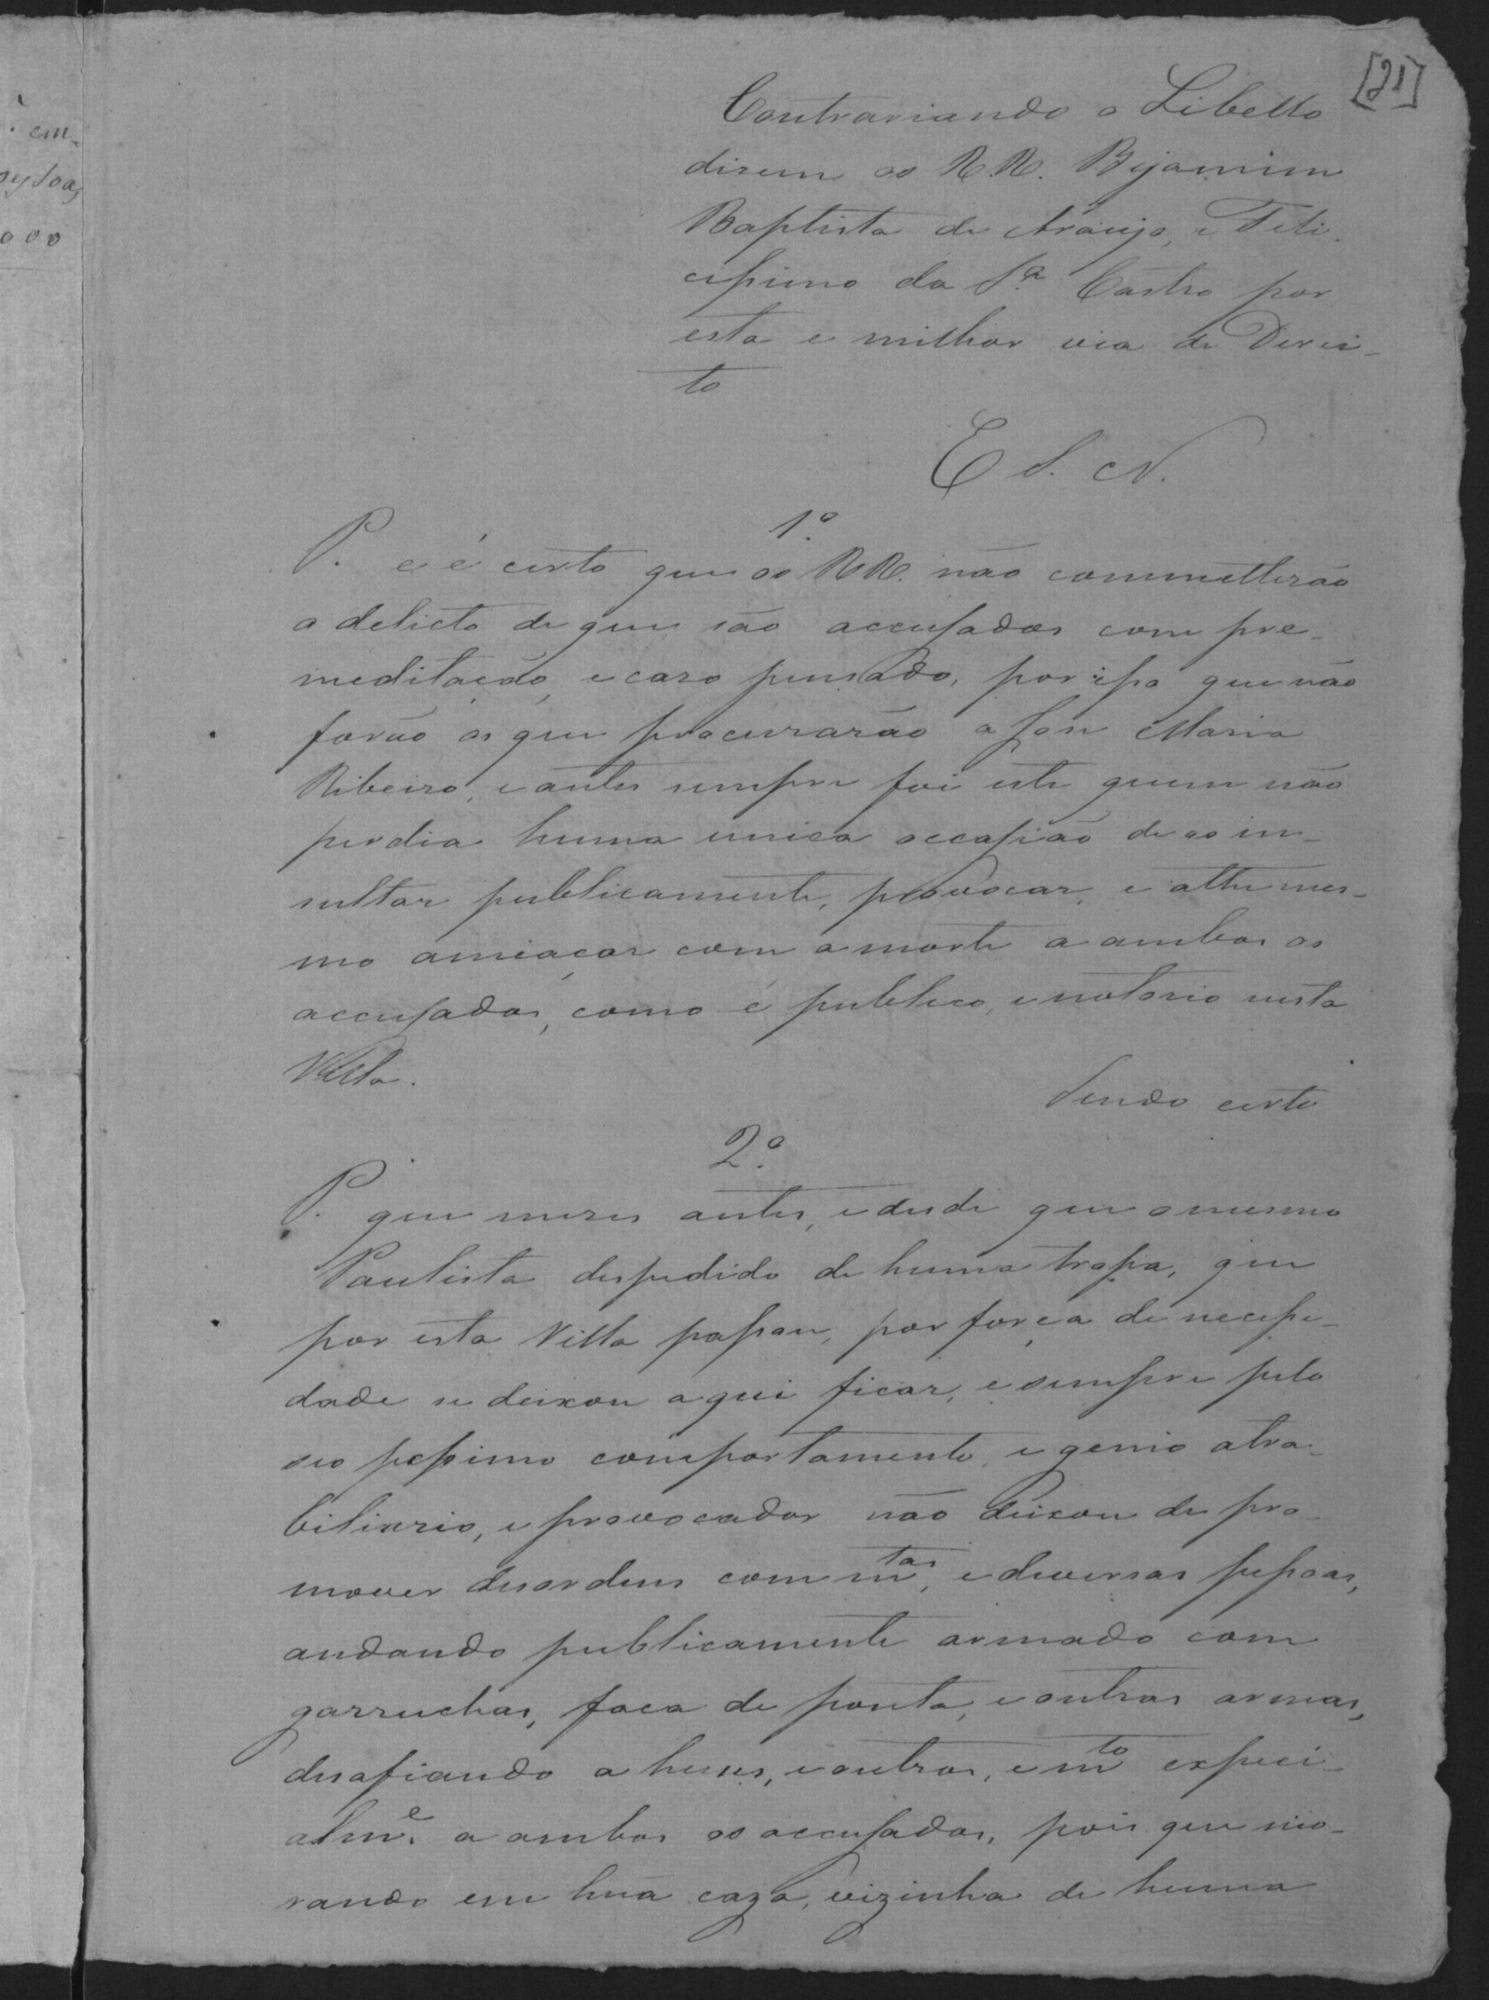 [21]
Contrariando o Libello
disem os RR. Bijamim
Baptista de Araujo, e Feli-
cissimo da S.ª Castro por
esta e milhor via de Derei-
to
E S. N.
1º.
P. e é certo que os RR. não commetterão
o delicto de que são accusados com pre-
meditação, e caso pensado, por isso que não
forão os que procurarão a José Maria
Ribeiro, e antes sempre foi este quem não
perdia huma unica occasião de os in-
sultar publicamente, provocar, e athe mes-
mo ameaçar com a morte a ambos os
accusados, como é publico, e notorio nesta
Villa.
Sendo certo
2º.
P. que meses antes, e desde que o mesmo
Paulista despedido de huma tropa, que
por esta Villa passou, por força de necessi-
dade se deixou aqui ficar, e sempre pelo
seo pessimo comportamento, e genio atra-
biliario, e provocador não deixou de pro-
mover desordens com m.tas, e diversas pessoas,
andando publicamente armado com
garruchas, faca de ponta, e outras armas,
desafiando a huns, e outros, e m.to especi-
alm.e a ambos os accusados, pois que mo-
rando em hũa caza, vizinha de huma
em-
essoas
000